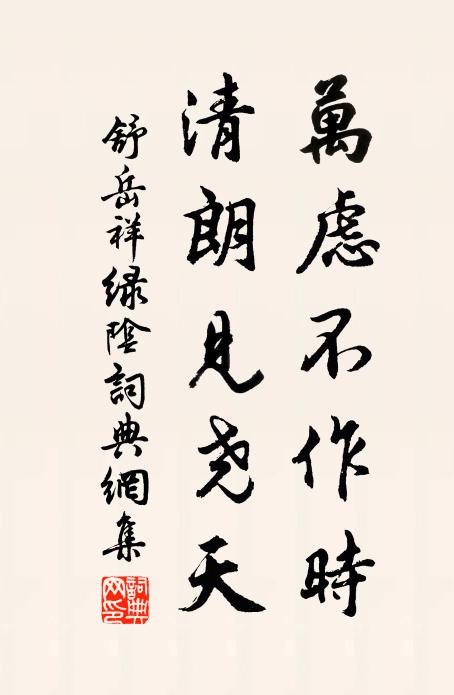 萬慮不作時
清朗見尧天
舒岳祥緑陰詞典網集
詞典网印